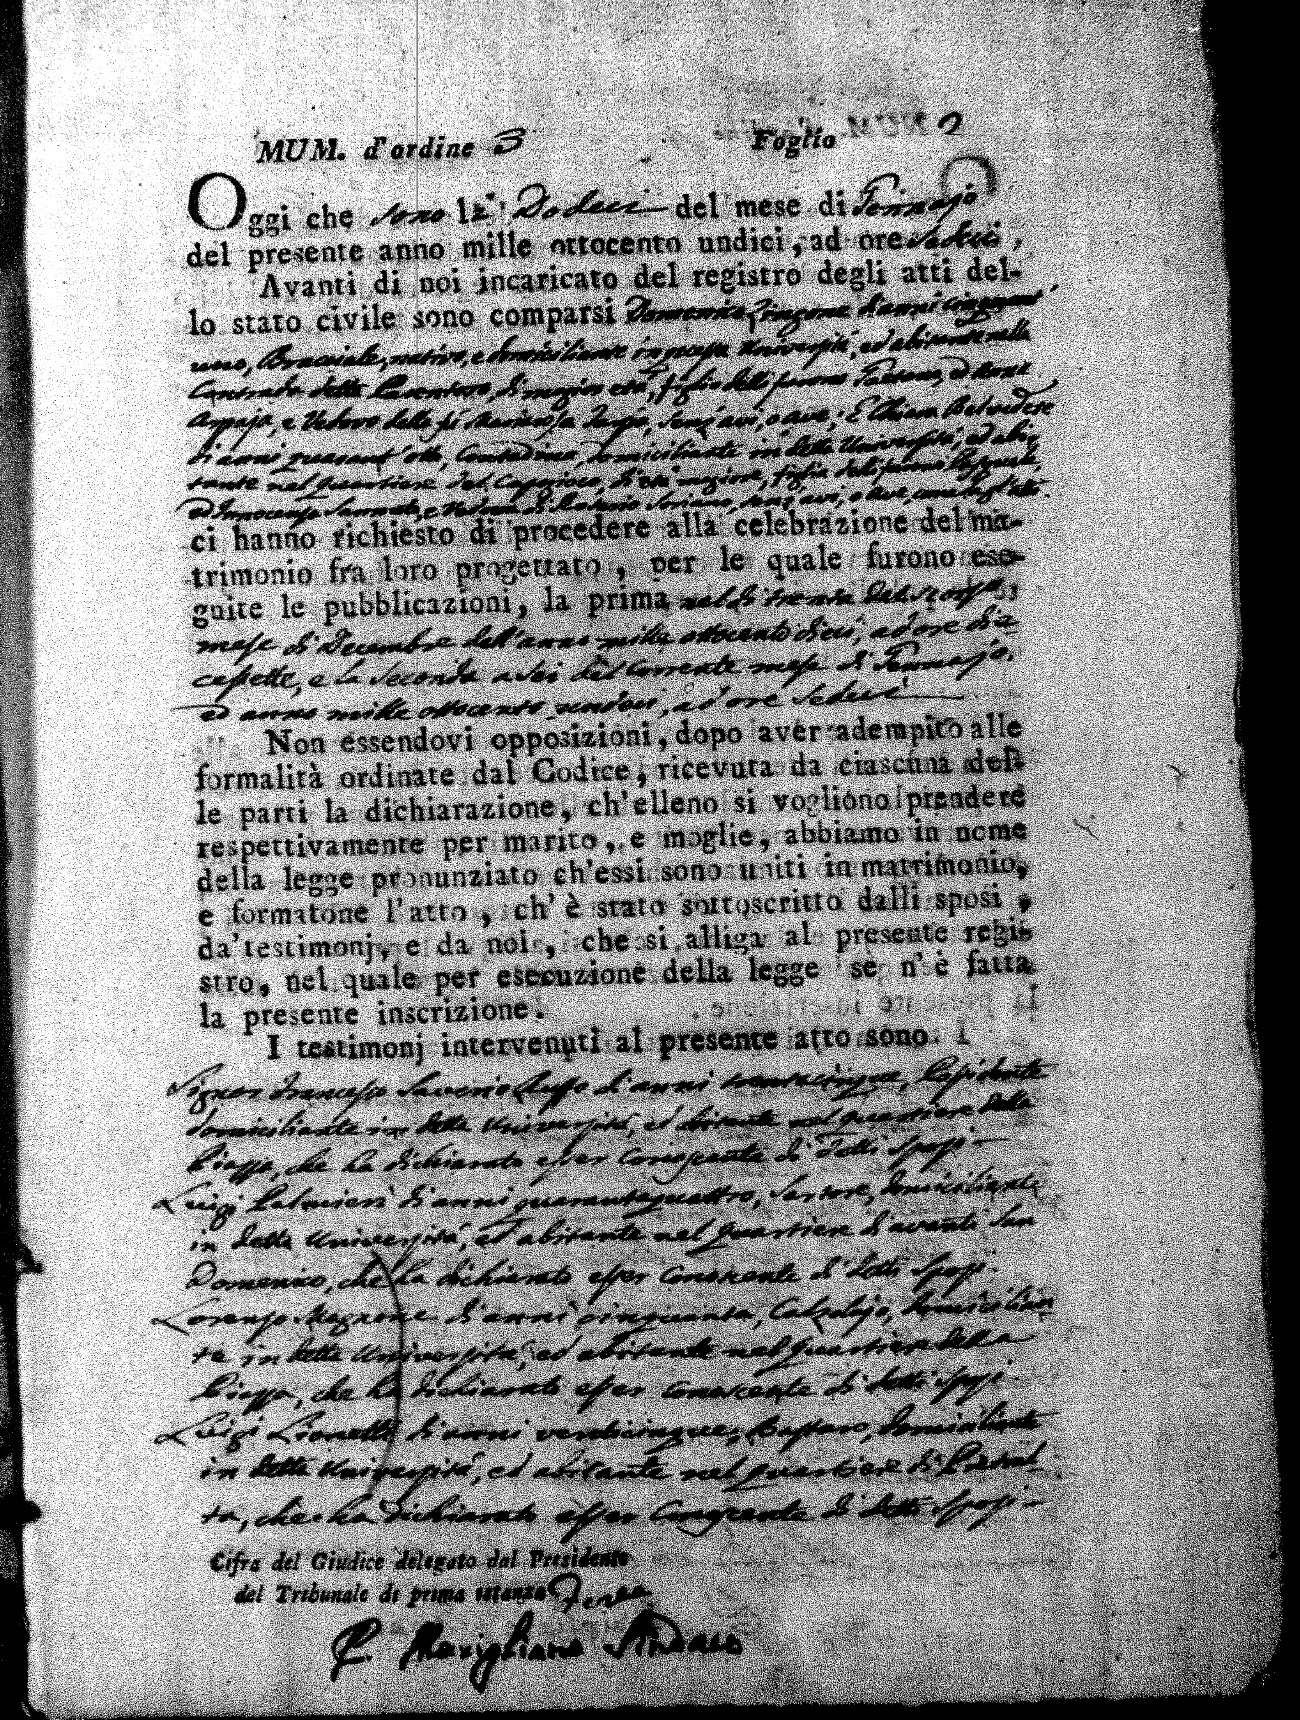 MUM. d'ordine 3 Foglio 2
Oggi che sono li Dodeci del mese di Gennajo
del presente anno mille ottocento undici, ad ore sedici,
Avanti di noi incaricato del registro degli atti del-
lo stato civile sono comparsi Domenico d'anni cinquant'
uno, Bracciale, nativo, e domiciliante in questa Università, ed abitante nella
Contrada detta di maggior età, figlio delli furono
e Vedovo della fù
d'anni quarant'otto, Contadina, domiciliante in detta Università, ed abi-
tante nel quartiere del di età maggiore, figlia delli furono Pasquale,
ed Innocenza e Vedova di
ci hanno richiesto di procedere alla celebrazione del ma-
trimonio fra loro progettato, per le quale furono ese-
guite le pubblicazioni, la prima nel dì trenta del scorso
mese di Decembre dell'anno mille ottocento dieci, ad ore di-
cessette, e la seconda a sei del corrente mese di Gennajo,
ed anno mille ottocento undeci, ad ore sedici
Non essendovi opposizioni, dopo aver adempito alle
formalità ordinate dal Codice, ricevuta da ciascuna del-
le parti la dichiarazione, ch'elleno si vogliono prendere
respettivamente per marito, e moglie, abbiamo in nome
della legge pronunziato ch'essi sono uniti in matrimonio,
e formatone l'atto, ch'è stato sottoscritto dalli sposi,
da' testimonj, e da noi, che si alliga al presente regi-
stro, nel quale per esecuzione della legge se n'è fatta
la presente inscrizione.
I testimonj intervenuti al presente atto sono.
Signor Francesco Saverio Ruffo d'anni trentacinque,
domiciliante in detta Università, ed abitante nel quartiere della
Piazza, che ha dichiarato esser Conoscente di detti Sposi
Luigi Palmieri d'anni quarantaquattro, Sartore, domiciliante
in detta Università, ed abitante nel quartiere d'avanti San
Domenico, che ha dichiarato esser Conoscente di detti Sposi
Lorenzo d'anni cinquanta, Calzolajo, domicilian
te in detta Università, ed abitante nel quartiere della
Piazza, che ha dichiarato esser Conoscente di detti Sposi
Luigi Lionetti d'anni venticinque, domiciliante
in detta Università, ed abitante nel quartiere di
ta, che ha dichiarato esser Congionto di detti Sposi
Cifra del Giudice delegato dal Presidente
del Tribunale di prima istanza
Marigliano Sindaco